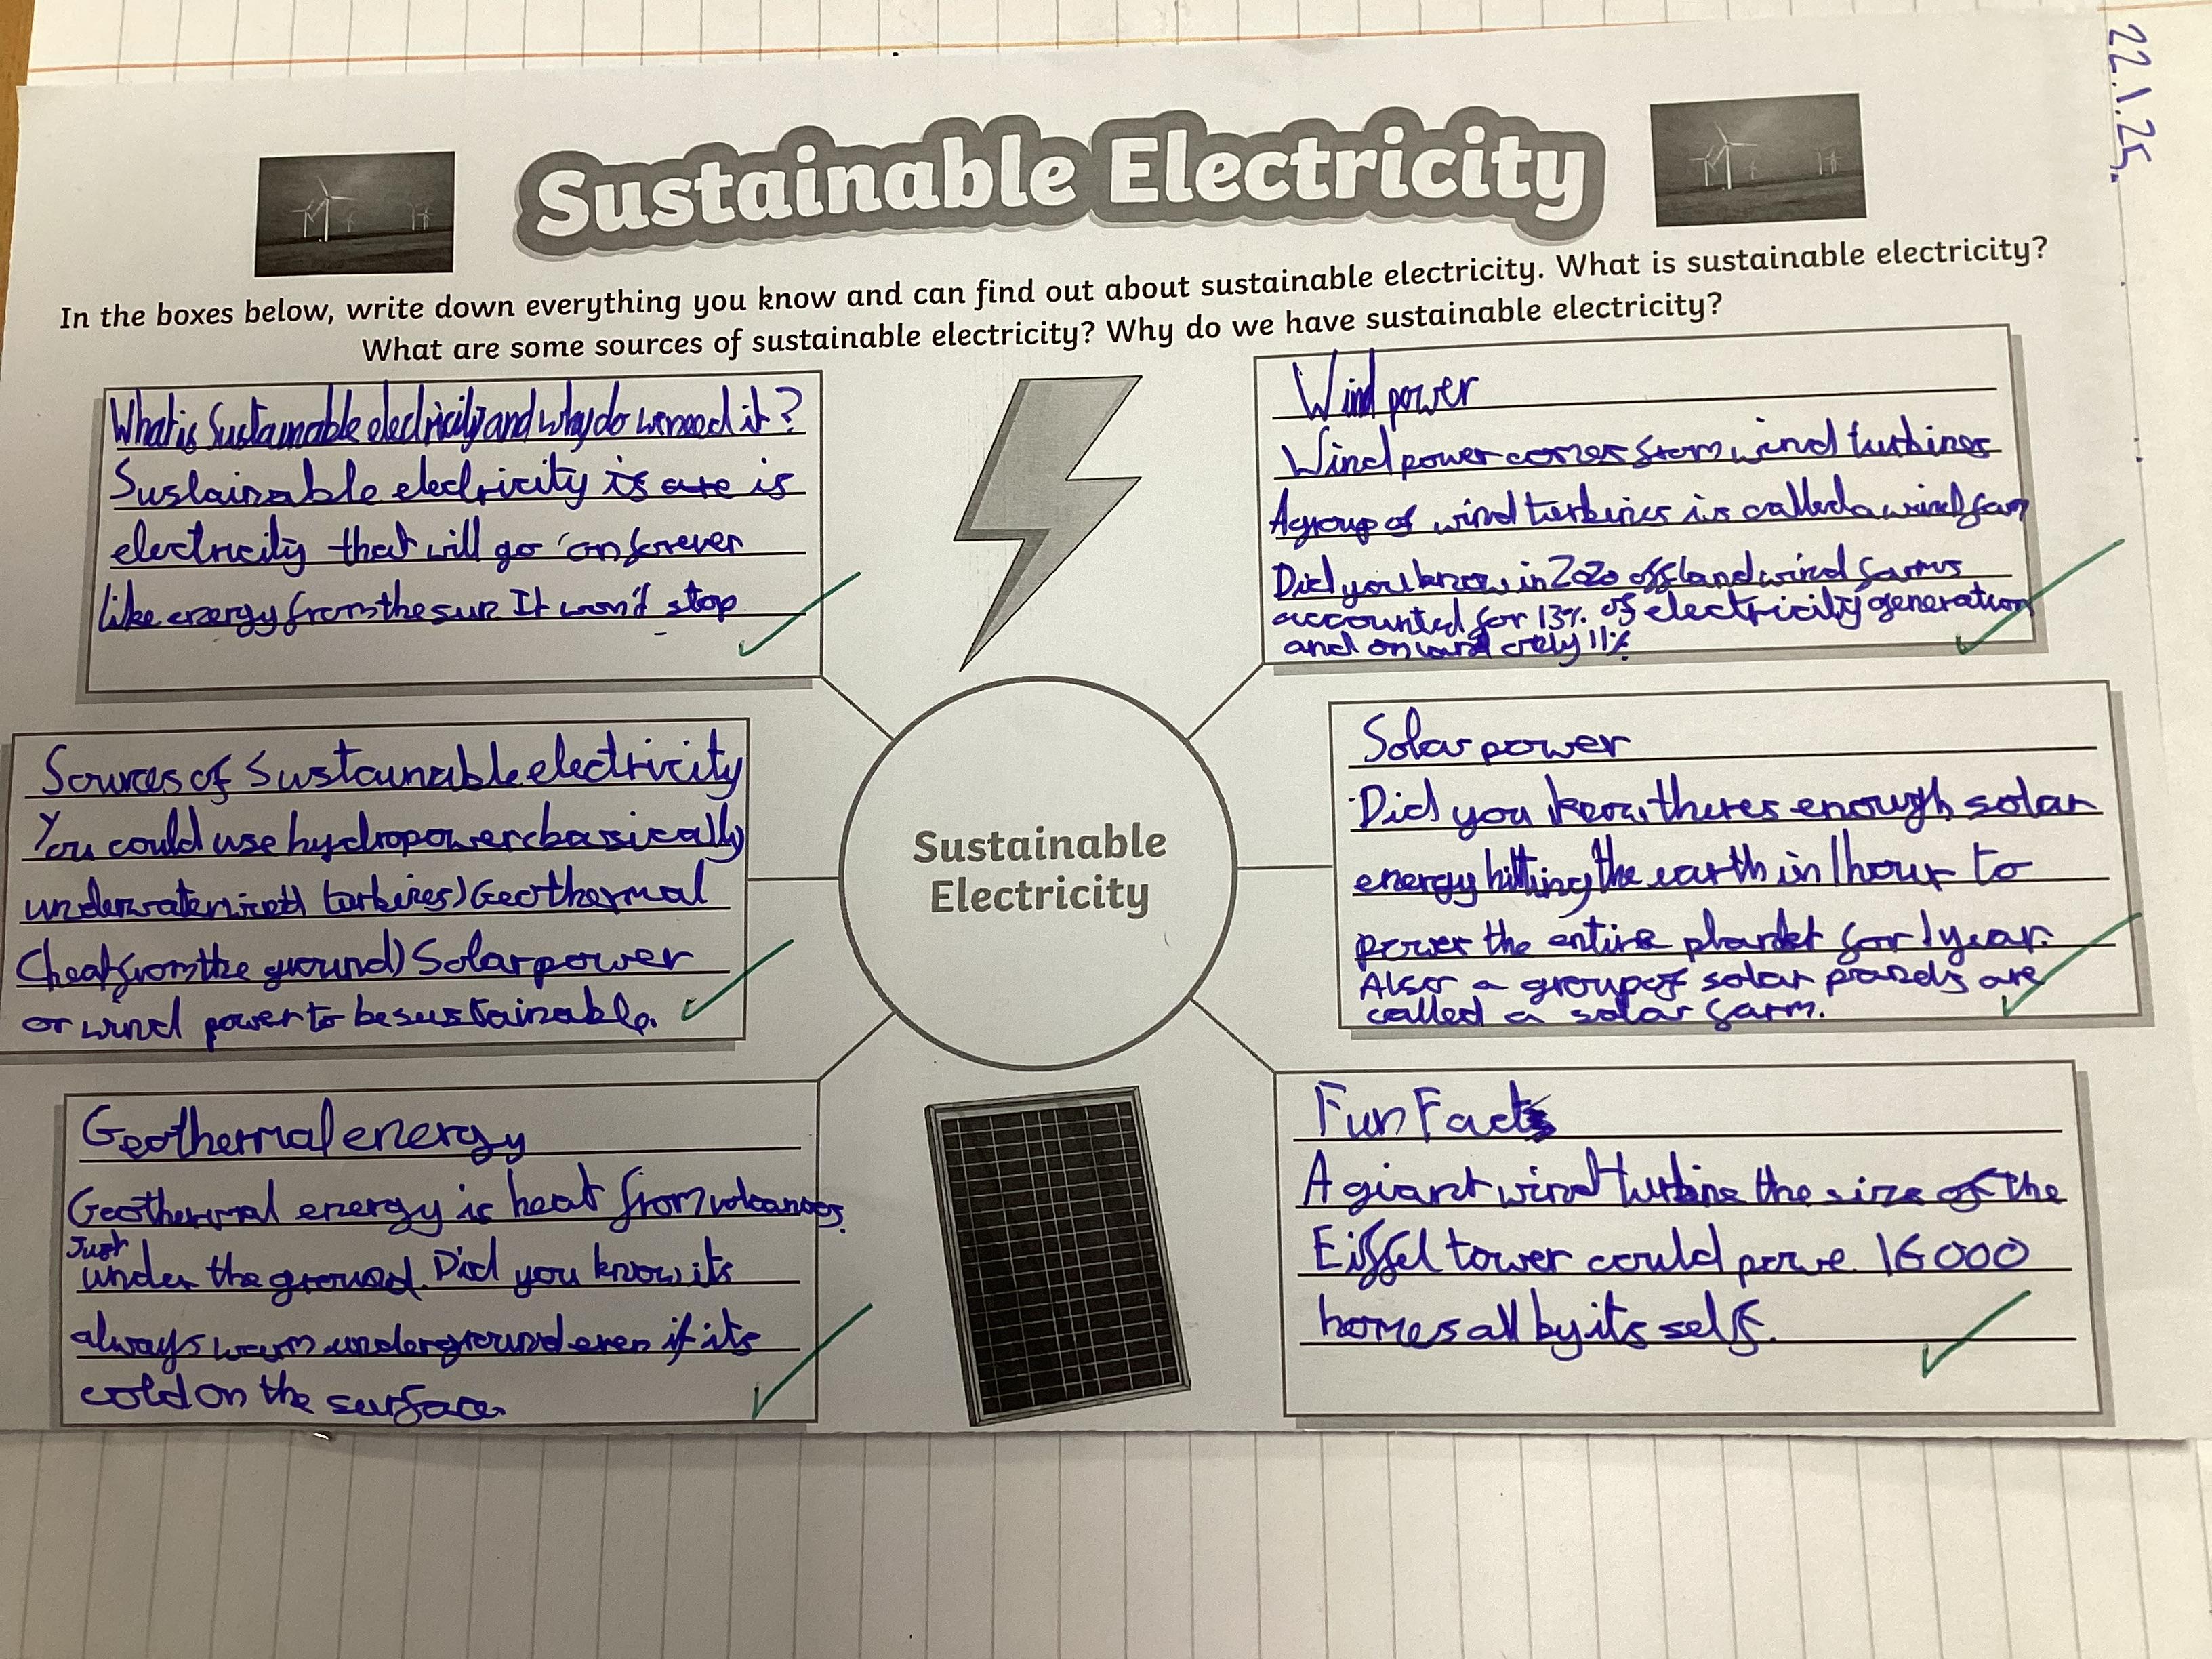 22.1.25.
Sustainable Electricity
In the boxes below, write down everything you know and can find out about sustainable electricity. What is sustainable electricity?
What are some sources of sustainable electricity? Why do we have sustainable electricity?
What is Sustainable electricity and why do we need it?
Sustainable electricity is are is
electricity that will go on forever
like energy from the sun. It won't stop
Sources of Sustainable electricity
You could use hydropower (basically
underwater wind turbines) Geothermal
(heat from the ground) Solar power
or wind power to be sustainable.
Geothermal energy
Geothermal energy is heat from volcanoes.
Just
under the ground. Did you know its
always warm underground even if its
cold on the surface.
Sustainable
Electricity
Wind power
Wind power comes from wind turbines
A group of wind turbines is called a wind farm
Did you know in 2020 offland wind farms
accounted for 13% of electricity generation
and onland only 11%.
Solar power
Did you know theres enough solar
energy hitting the earth in 1 hour to
power the entire planet for 1 year.
Also a group of solar panels are
called a solar farm.
Fun Facts
A giant wind turbine the size of the
Eiffel tower could powe 16000
homes all by its self.